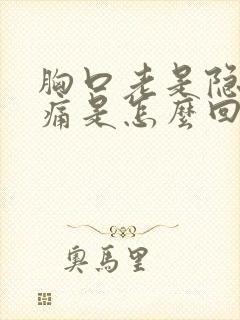 胸口老是隐
痛是怎麼回
奥馬里